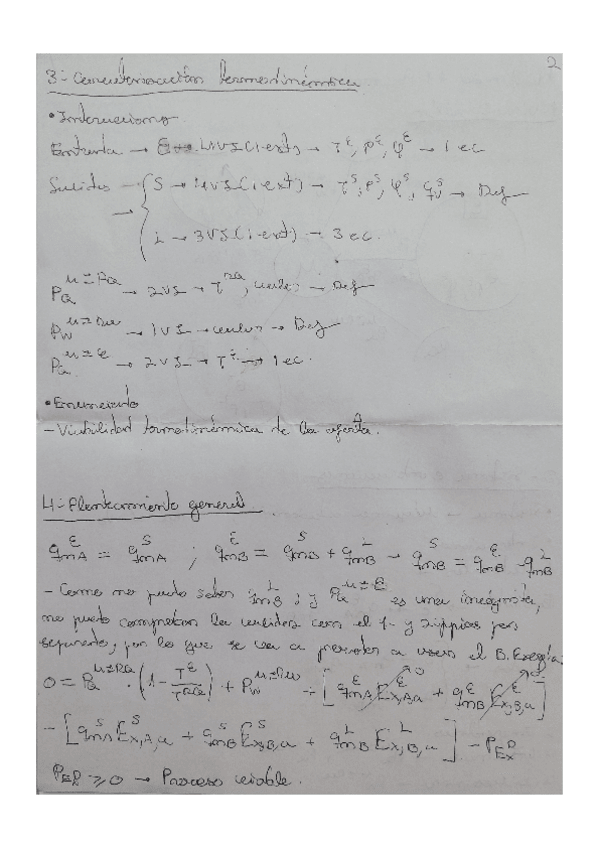 2
3.- Caracterización termodinámica
• Interacciones
Entrada → 4VI (1 ext) → T^E, P^E, φ^E → 1 ec
Salidas → { S → 4VI (1 ext) → T^S, P^S, φ^S, q_V^S → Def
L → 3VI (1 ext) → 3 ec.
P_Q^{u≡RQ} → 2VI → T^{RQ}, → Def
P_W^{u≡RW} → 1VI → → Def
P_Q^{u≡E} → 2VI → T^E → 1 ec.
• Enunciado
- Viabilidad termodinámica de la oferta.
4.- Planteamiento general
q_{mA}^E = q_{mA}^S ; q_{mB}^E = q_{mB}^S + q_{mB}^L → q_{mB}^S = q_{mB}^E - q_{mB}^L
- Como no puedo saber q_{mB}^L ; y P_Q^{u≡E} es una incógnita,
no puedo comprobar la validez con el 1º y 2º ppios por
separado, por lo que se va a proceder a usar el B. Exergía:
0 = P_Q^{u≡RQ} · (1 - T^E/T^{RQ}) + P_W^{u≡RW} + [q_{mA}^E E_{x,A,u}^E + q_{mB}^E E_{x,B,u}^E] → 0
- [q_{mA}^S E_{x,A,u}^S + q_{mB}^S E_{x,B,u}^S + q_{mB}^L E_{x,B,u}^L] - P_{Ex}^D
P_{ED} ≥ 0 → Proceso viable.